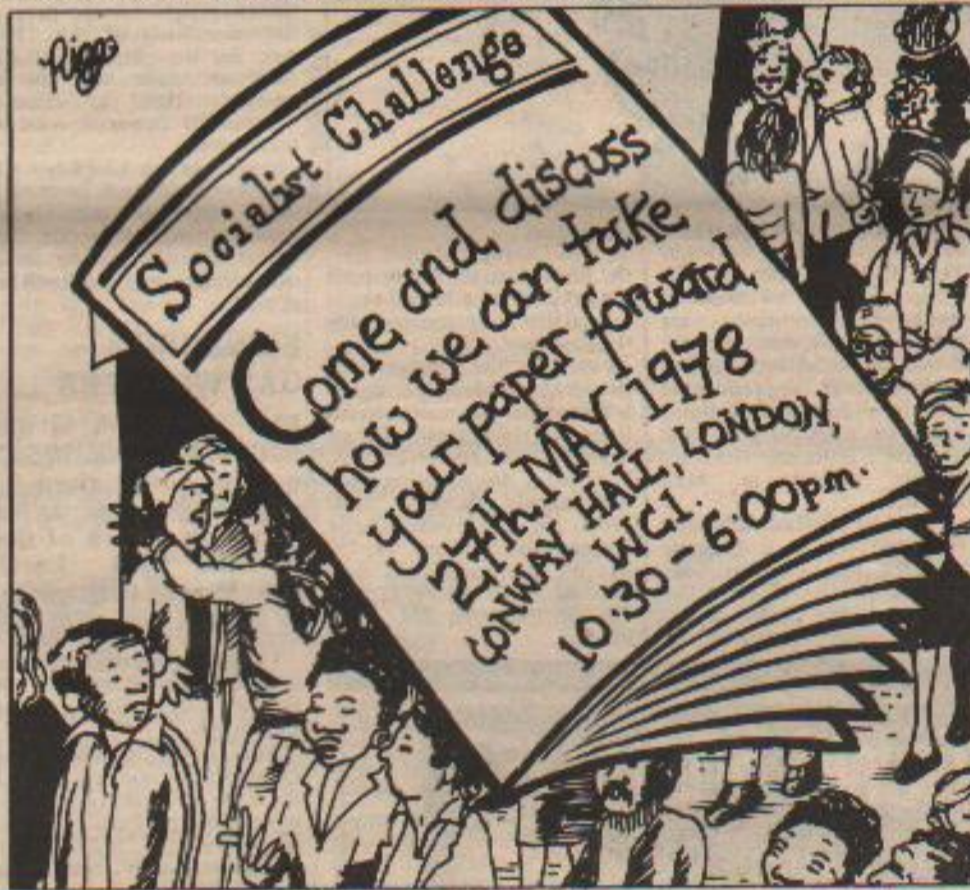 Riggs
Socialist Challenge
Come and discuss
how we can take
your paper forward
27th MAY 1978
CONWAY HALL, LONDON,
WC1.
10.30 - 6.00pm.